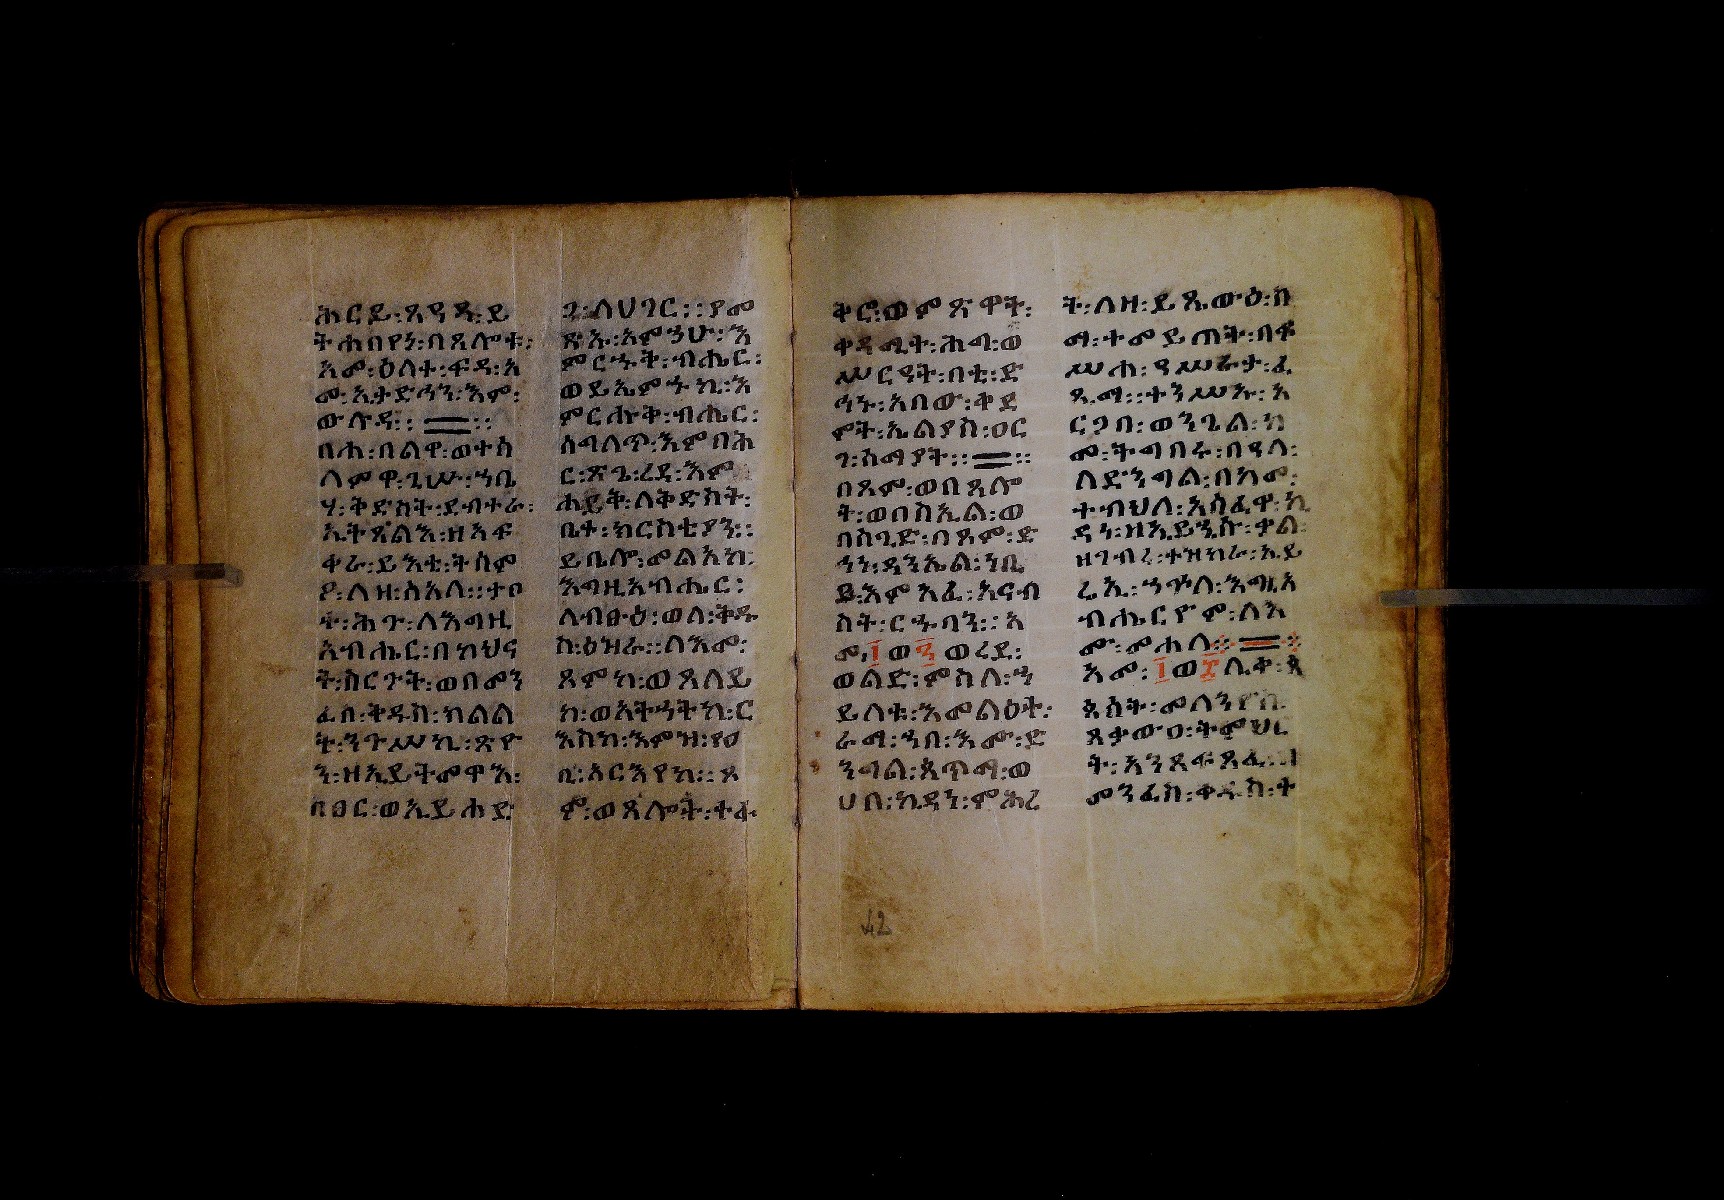 ሕርይ፡ጸዳዳ፡ይ
ትሐበየነ፡በጸሎቱ፡
አመ፡ዕለተ፡ፍዳ፡አ
መ፡ኢታድኅን፡እም፡
ውሉዳ፡፡ ፡፡
በሐ፡በልዋ፡ወተስ
ላምዋ፡ጊሡ፡ኀቤ
ሃ፡ቅድስት፡ደብተራ፡
ኢትጸልእ፡ዘአፍ
ቀራ፡ይእቲ፡ትሰም
ዖ፡ለዘ፡ስአለ፡፡ታዐ
ቱ፡ሕጉ፡ለእግዚ
አብሔር፡በክህና
ት፡ስርጉት፡ወበመን
ፈስ፡ቅዱስ፡ክልል
ት፡ንጉሥኪ፡ጽዮ
ን፡ዘኢይትመዋእ፡
በፀር፡ወኢይሐደ
ጋ፡ለሀገር፡፡ያመ
ጽኡ፡አምኃሁ፡እ
ምርኁቅ፡ብሔር፡
ወይኤምኁኪ፡እ
ምርሑቅ፡ብሔር፡
ሰባለጥ፡እምበሕ
ር፡ጽጌ፡ረዳ፡እም
ሐይቅ፡ለቅድስት፡
ቤተ፡ክርስቲያን፡፡
ይቤሎ፡መልአክ፡
እግዚአብሔር፡
ለብፁዕ፡ወለ፡ቅዱ
ስ፡ዕዝራ፡፡ለእመ፡
ጾምከ፡ወጸለይ
ከ፡ወአትኃትከ፡ር
እስከ፡እምዝ፡የዐ
ቢ፡አርእየከ፡፡ጾ
ም፡ወጸሎት፡ተፋ
ቅሮ፡ወምጽዋት፡
ቀዳሚት፡ሕግ፡ወ
ሥርዓት፡በቲ፡ድ
ኅኑ፡አበው፡ቀደ
ምት፡ኤልያስ፡ዐር
ገ፡ሰማያት፡፡ ፡፡
በጾም፡ወበጸሎ
ት፡ወበስኢል፡ወ
በሰጊድ፡በጾም፡ድ
ኅነ፡ዳንኤል፡ነቢ
ይ፡እምአፈ፡አናብ
ስት፡ርኁባን፡፡አ
መ፡፲ወ፭ወረደ፡
ወልድ፡ምስለ፡ኀ
ይለቱ፡እመልዕት፡
ራማ፡ኀበ፡እሙ፡ድ
ንግል፡ጳጥማ፡ወ
ሀበ፡ኪዳነ፡ምሕረ
ት፡ለዘ፡ይጼውዕ፡በ
ማ፡ተመይጠት፡በፍ
ሥሐ፡ዳሥራታ፡ፈ
ጺማ፡፡ተንሥኡ፡አ
ርጋብ፡ወንጌል፡ከ
መ፡ትግበሩ፡በዓለ፡
ለድንግል፡በከመ፡
ተብህለ፡አስፈዋ፡ኪ
ዳነ፡ዘኢይኄሱ፡ቃል፡
ዘገብረ፡ተዝከራ፡ኢይ
ሬኢ፡ኀጕለ፡እግዚአ
ብሔርዮም፡ለእ
ሙ፡መሐለ፡፡ ፡፡
አመ፡፲ወ፮ሊቀ፡ጳ
ጳስት፡መለንዮስ
ጸቃውዐ፡ትምህር
ት፡እንጸፍጸፈ፡በ
መንፈስ፡ቀዱስ፡ተ
42